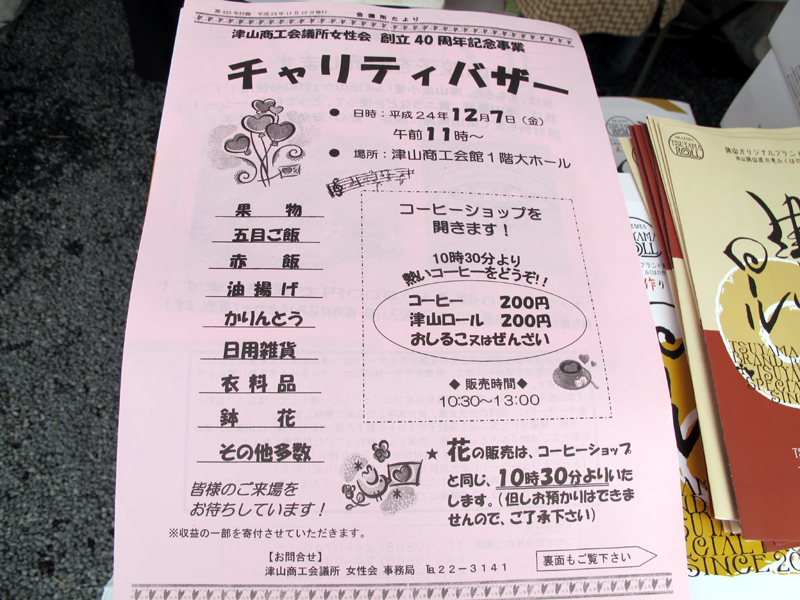 第485号付録 平成24年11月10日発行
会議所だより
津山商工会議所女性会 創立40周年記念事業
チャリティバザー
● 日時：平成24年12月7日（金）
午前11時～
● 場所：津山商工会館1階大ホール
果物
五目ご飯
赤飯
油揚げ
かりんとう
日用雑貨
衣料品
鉢花
その他多数
コーヒーショップを
開きます！
10時30分より
熱いコーヒーをどうぞ!!
コーヒー 200円
津山ロール 200円
おしるこ又はぜんざい
◆ 販売時間 ◆
10:30～13:00
★ 花の販売は、コーヒーショップ
と同じ、10時30分よりいた
します。（但しお預かりはできま
せんので、ご了承下さい）
皆様のご来場を
お待ちしています！
※収益の一部を寄付させていただきます。
【お問合せ】
津山商工会議所 女性会 事務局 ℡22－3141
裏面もご覧下さい
TSUYAMA
ROLL
津山オリジナルブランド
ロール
TSUYAMA
BRAND
SPECIAL
SINCE
SINCE 20